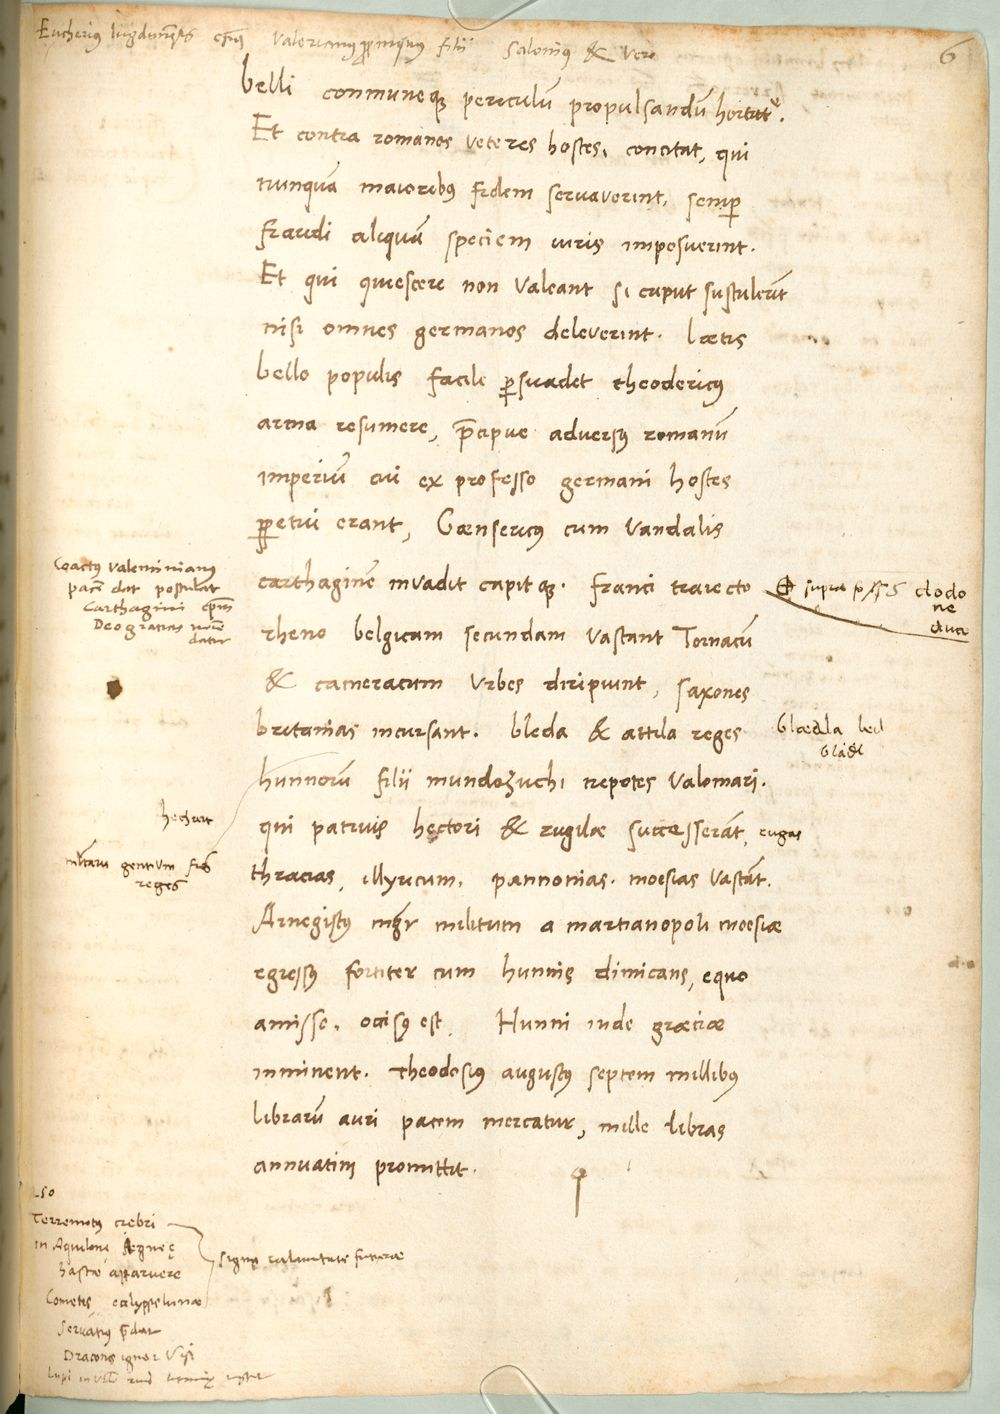 Eucherius lugdunēsis Valerianus filii Salonius & Vero
6
belli communeqꝫ periculū propulsandū hortatᵉ.
Et contra romanos veteres hostes, concitat, qui
nunquā maioribus fidem servaverint, semꝑ
fraudi aliquā speciem iuris imposuerint.
Et qui quiescere non valeant si caput sustulerīt
nisi omnes germanos deleverint. lætis
bello populis facile ꝑsuadet theodericus
arma resumere, p̄cipue adversꝰ romanū
imperiū cui ex professo germani hostes
ꝑpetui erant, Gænsericus cum Vandalis
carthaginē invadit capitqꝫ. franci traiecto
rheno belgicam secundam vastant Tornacū
& cameracum Vrbes diripiunt, saxones
britannias incursant. bleda & attila reges
hunnorū filii mundozuchi nepotes Valomari.
qui patruis hectori & rugilæ successerāt, rugas
thracias, illyricum, pannonias. moesias vastāt.
Arnegistꝰ mgr̄ militum a martianopoli moesiæ
egressꝰ fortiter cum hunnis dimicans, equo
amisso, occisꝰ est. Hunni inde græciæ
imminent. theodosiꝰ augustꝰ septem millibus
librarū auri pacem mercatur, mille libras
annuatim promittit.
Coactꝰ valentinianꝰ
pacē dat postulat
Carthagini ep̄m
Deogratias noīe
datur
supra clodo
ne
duci
Glædla
hechart
multarū gentium
reges
450
Terremotꝰ crebri
in Aquilone
hastæ apparuere
Cometes eclypsis lunæ
Servatiꝰ p̄dicat
signa futuræ